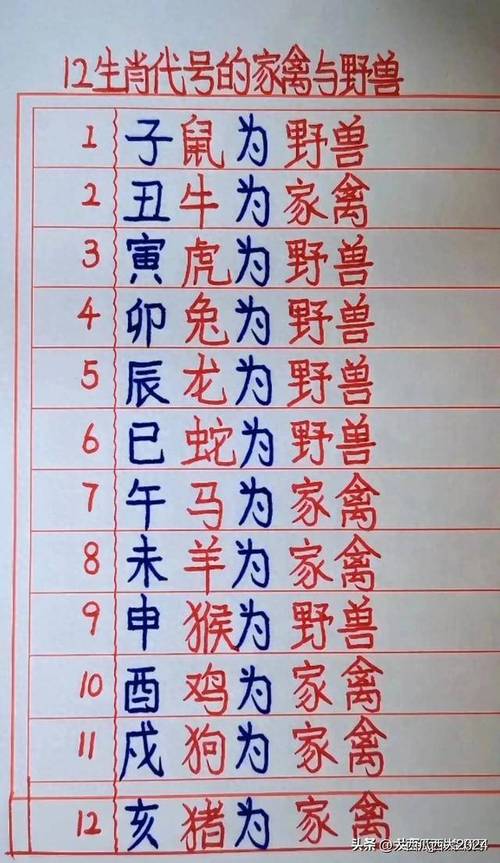 12生肖代号的家禽与野兽
1 子鼠为野兽
2 丑牛为家禽
3 寅虎为野兽
4 卯兔为野兽
5 辰龙为野兽
6 巳蛇为野兽
7 午马为家禽
8 未羊为家禽
9 申猴为野兽
10 酉鸡为家禽
11 戌狗为家禽
12 亥猪为家禽
头条 2024